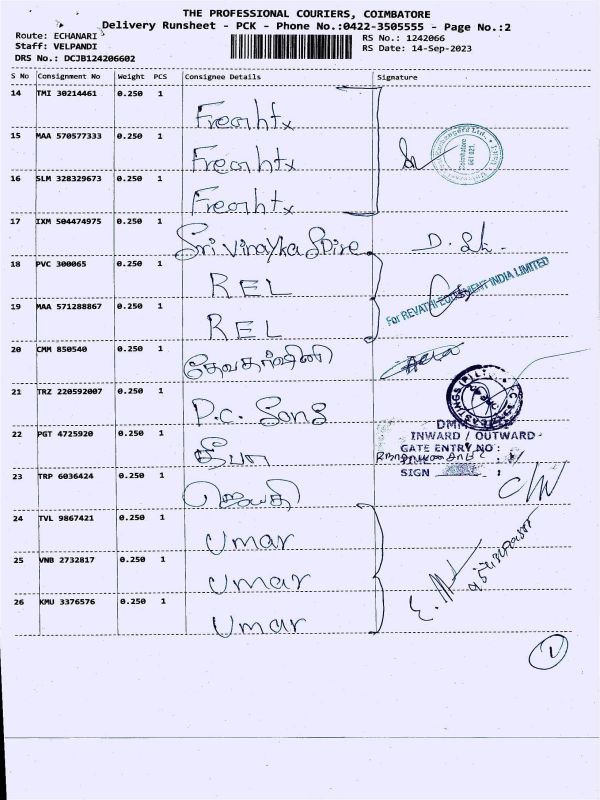 THE PROFESSIONAL COURIERS, COIMBATORE
Delivery Runsheet - PCK - Phone No.:0422-3505555 - Page No.:2
Route: ECHANARI RS No.: 1242066
Staff: VELPANDI RS Date: 14-Sep-2023
DRS No.: DCJB124206602
S No Consignment No Weight PCS Consignee Details Signature
14 TMI 30214461 0.250 1 Freohtx
15 MAA 570577333 0.250 1 Freohtx
16 SLM 328329673 0.250 1 Freohtx
17 IXM 504474975 0.250 1 Sri Vinayka Spire
18 PVC 300065 0.250 1 REL
For REVATHI EQUIPMENT INDIA LIMITED
19 MAA 571288867 0.250 1 REL
20 CMM 850540 0.250 1 தேவதர்ஷினி
21 TRZ 220592007 0.250 1 P.C. Song
22 PGT 4725920 0.250 1 தீபா
INWARD / OUTWARD
GATE ENTRY NO :
SIGN :
23 TRP 6036424 0.250 1 ஜெயதி
24 TVL 9867421 0.250 1 Umar
25 VNB 2732817 0.250 1 Umar
26 KMU 3376576 0.250 1 Umar
1